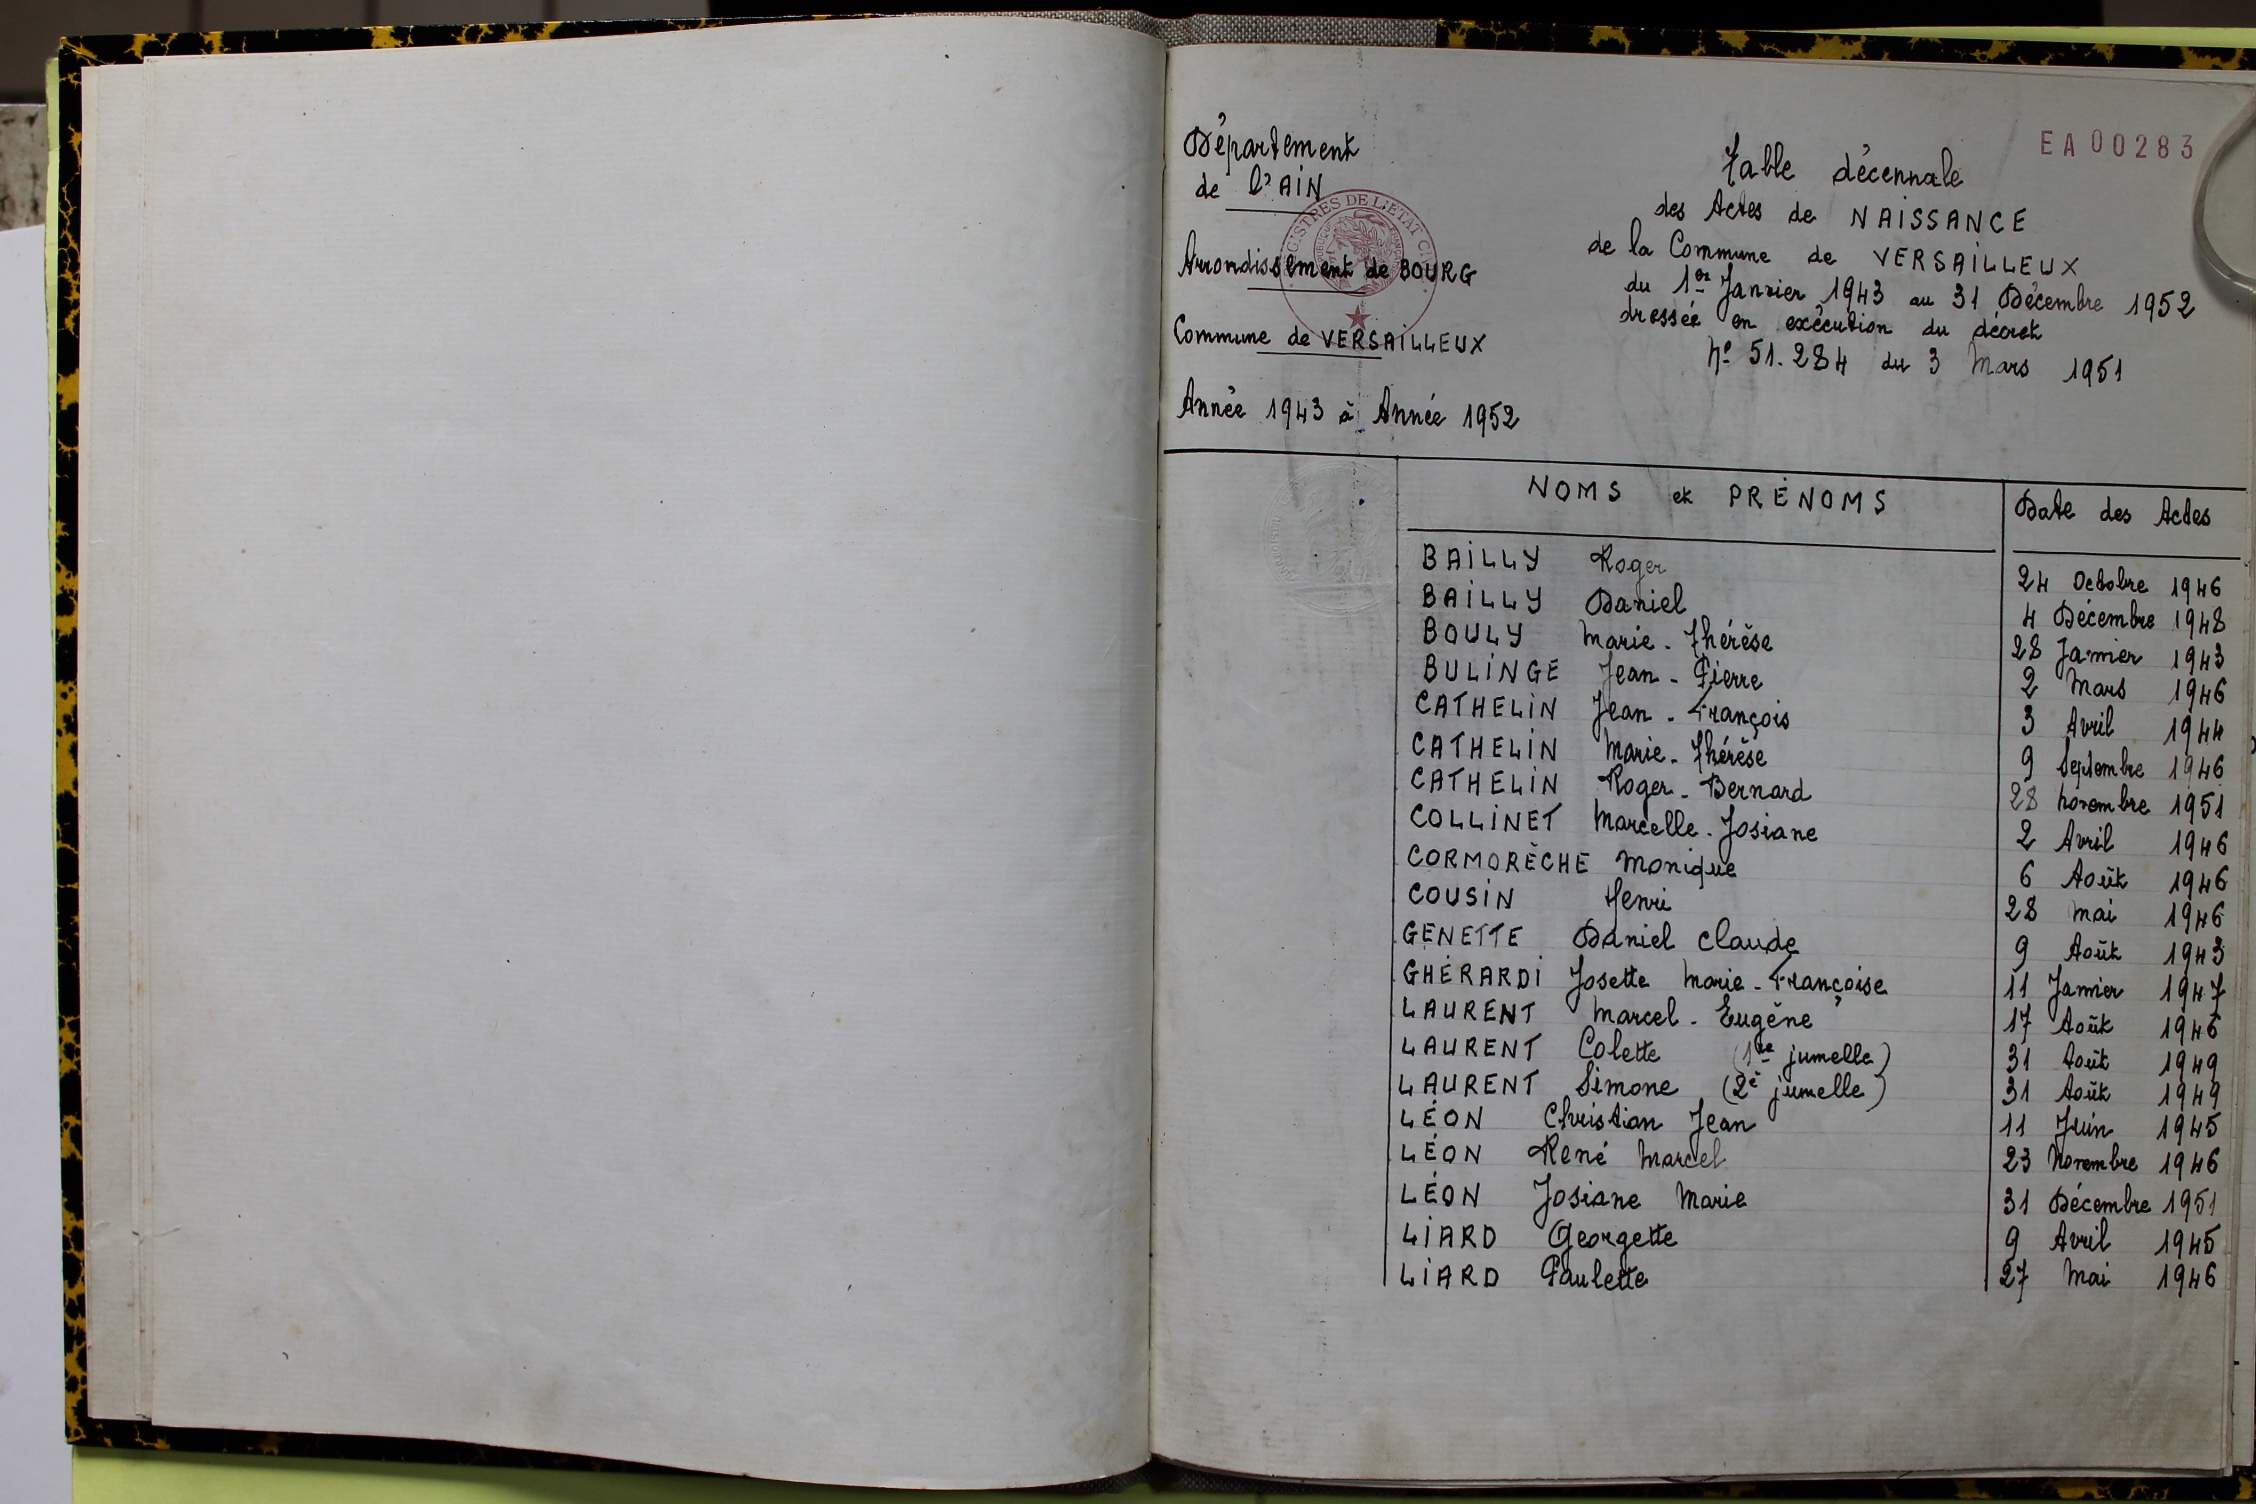 Département
de l'AIN
Arrondissement de BOURG
Commune de VERSAILLEUX
Année 1943 à Année 1952
EA00283
Table décennale
des Actes de NAISSANCE
de la Commune de VERSAILLEUX
du 1er Janvier 1943 au 31 Décembre 1952
dressée en exécution du décret
N° 51.284 du 3 Mars 1951
NOMS et PRÉNOMS Date des Actes
BAILLY Roger 24 Octobre 1946
BAILLY Daniel 4 Décembre 1948
BOULY Marie-Thérèse 28 Janvier 1943
BULINGE Jean-Pierre 2 Mars 1946
CATHELIN Jean-François 3 Avril 1944
CATHELIN Marie-Thérèse 9 Septembre 1946
CATHELIN Roger-Bernard 28 Novembre 1951
COLLINET Marcelle-Josiane 2 Avril 1946
CORMORÈCHE Monique 6 Août 1946
COUSIN Henri 28 Mai 1946
GENETTE Daniel Claude 9 Août 1943
GHÉRARDI Josette Marie-Françoise 11 Janvier 1947
LAURENT Marcel-Eugène 17 Août 1946
LAURENT Colette (1re jumelle) 31 Août 1949
LAURENT Simone (2e jumelle) 31 Août 1949
LÉON Christian Jean 11 Juin 1945
LÉON René Marcel 23 Novembre 1946
LÉON Josiane Marie 31 Décembre 1951
LIARD Georgette 9 Avril 1945
LIARD Paulette 27 Mai 1946